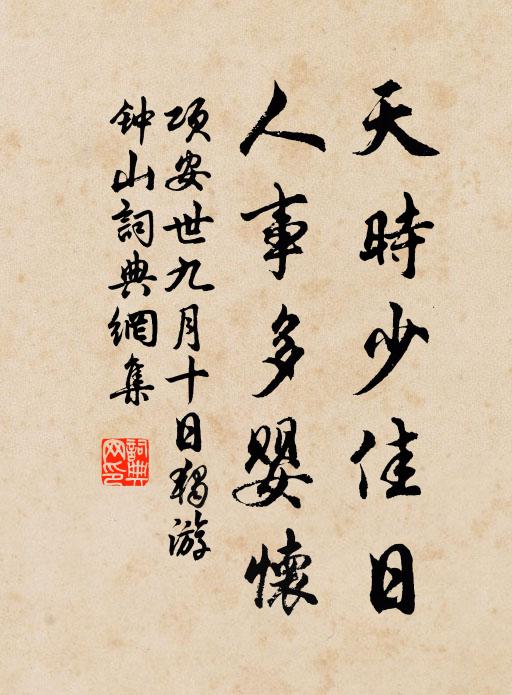 天時少佳日
人事多嬰懷
项安世九月十日獨游
钟山詞典網集
詞典網印